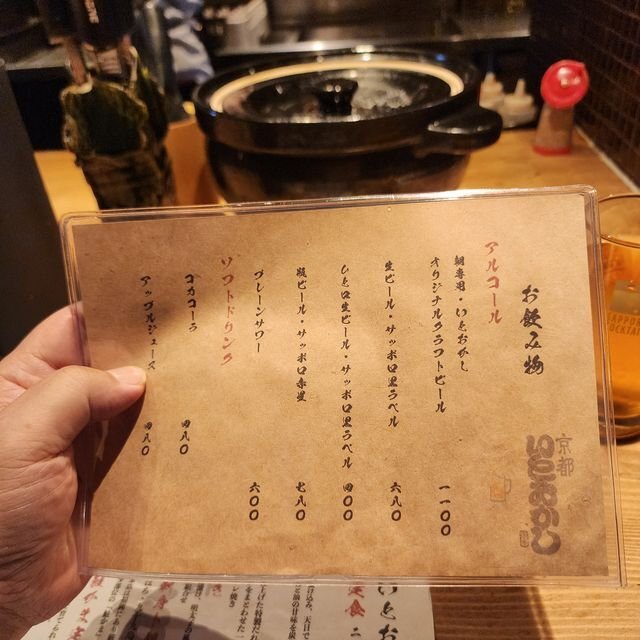 お飲み物
アルコール
朝専用・いとおかし
オリジナルクラフトビール
一一〇〇
生ビール・サッポロ黒ラベル
六八〇
ひと口生ビール・サッポロ黒ラベル
四〇〇
瓶ビール・サッポロ赤星
七八〇
プレーンサワー
六〇〇
ソフトドリンク
コカコーラ
四八〇
アップルジュース
四八〇
京都